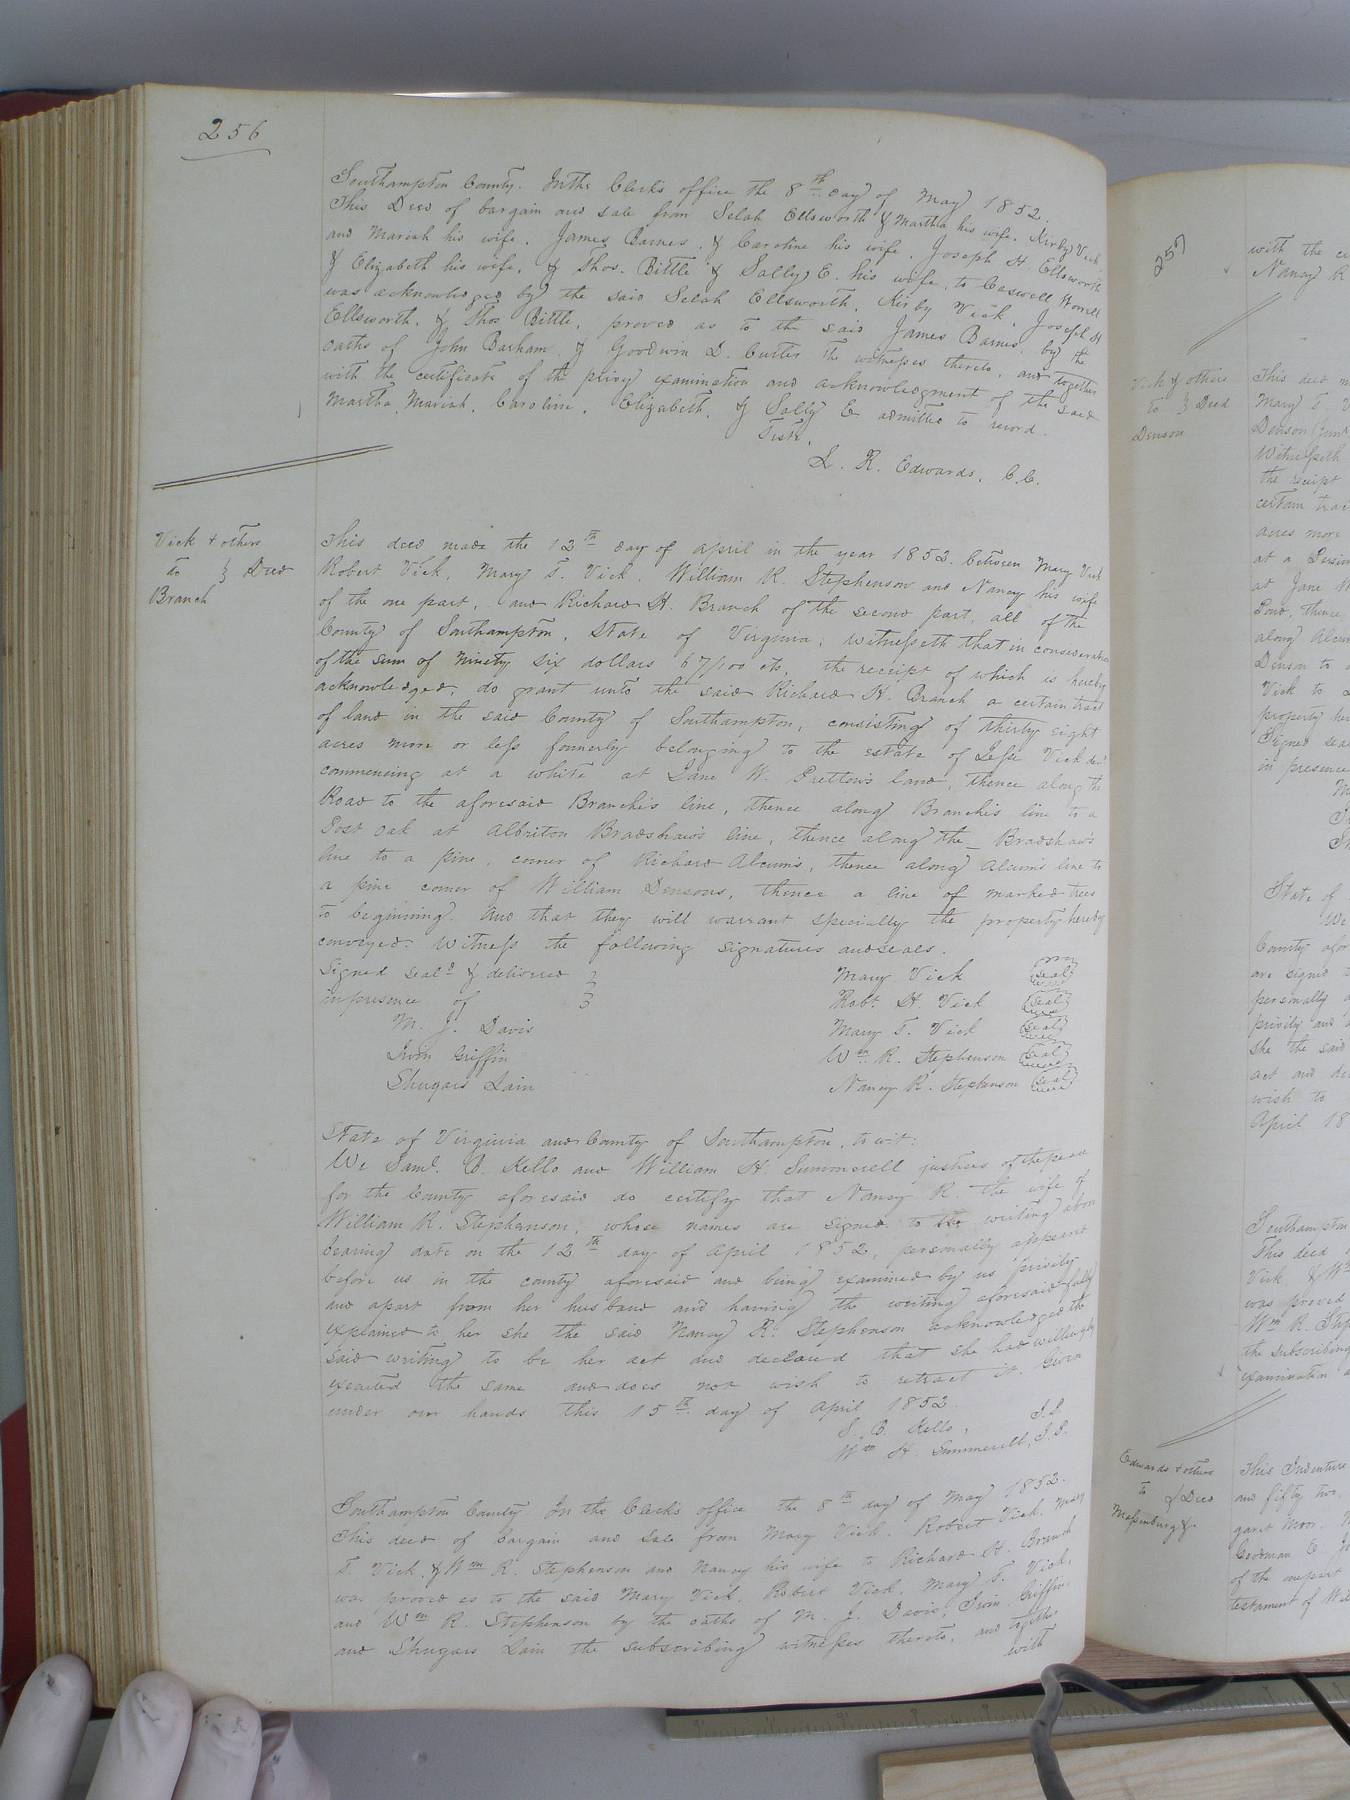 256
Southampton County. In the Clerk's office the 8th day of May 1852.
This Deed of bargain and sale from Selah Ellsworth & Martha his wife, Kirby Vick
and Mariah his wife, James Barnes, & Caroline his wife, Joseph H. Ellsworth
& Elizabeth his wife, & Thos. Bittle & Sally E. his wife, to Caswell Worrell
was acknowledged by the said Selah Ellsworth, Kirby Vick, Joseph H
Ellsworth, & Thos Bittle, proved as to the said James Barnes, by the
oaths of John Barham & Goodwin D. Cutler the witnesses thereto, and together
with the certificate of the privy examination and acknowledgment of the said
Martha, Mariah, Caroline, Elizabeth, & Sally E admitted to record.
Teste,
L. R. Edwards, C.C.
Vick & others
to } Deed
Branch
This deed made the 12th day of April in the year 1852 between Mary Vick
Robert Vick, Mary T. Vick, William R. Stephenson and Nancy his wife
of the one part, and Richard H. Branch of the second part, all of the
County of Southampton, State of Virginia, Witnesseth that in consideration
of the sum of Ninety six dollars 67/100 cts, the receipt of which is hereby
acknowledged, do grant unto the said Richard H. Branch a certain tract
of land in the said County of Southampton, consisting of thirty eight
acres more or less formerly belonging to the estate of Jesse Vick decd
commencing at a white at Jane W. Pretlow's land, thence along the
Road to the aforesaid Branch's line, thence along Branch's line to a
Post oak at Albriton Bradshaw's line, thence along the Bradshaw's
line to a pine, corner of Richard Alcum's, thence along Alcum's line to
a pine corner of William Densons, thence a line of marked trees
to beginning. And that they will warrant specially the property hereby
conveyed. Witness the following signatures and seals.
Signed seald & delivered }
in presence of }
M. J. Davis
Irvin Griffin
Shugars Lain
Mary Vick (seal)
Robt. H. Vick (seal)
Mary T. Vick (seal)
Wm R. Stephenson (seal)
Nancy R. Stephenson (seal)
State of Virginia and County of Southampton, to wit:
We Saml. B. Kello and William H. Summerell justices of the peace
for the County aforesaid do certify that Nancy R. the wife of
William R. Stephenson, whose names are signed to the writing above
bearing date on the 12th day of April 1852, personally appeared
before us in the county aforesaid and being examined by us privily
and apart from her husband and having the writing aforesaid fully
explained to her she the said Nancy R. Stephenson acknowledged the
said writing to be her act and declared that she had willingly
executed the same and does not wish to retract it. Given
under our hands this 15th day of April 1852.
S. B. Kello, J.P.
Wm H. Summerell, J.P.
Southampton County. In the Clerk's office the 8th day of May 1852.
This deed of bargain and sale from Mary Vick, Robert Vick, Mary
T. Vick, & Wm R. Stephenson and Nancy his wife to Richard H. Branch
was proved as to the said Mary Vick, Robert Vick, Mary T. Vick,
and Wm R. Stephenson by the oaths of M. J. Davis, Irvin Griffin,
and Shugars Lain the subscribing witnesses thereto, and together
with
257
with the ce
Nancy R
Vick & others
to } Deed
Denson
This deed m
Mary T. V
Denson (jun
Witnesseth
the receipt
certain trac
acres more
at a Persim
at Jane W
Pond, thence
along Alcum
Denson to a
Vick to
property her
Signed sea
in presence
State of
We
County afor
are signed t
personally a
privily and
she the said
act and de
wish to
April 18
Southampton
This deed
Vick, & Wm
was proved
Wm R. Step
the subscribing
examination a
Edwards & others
to } Deed
Massenburg &
This Indenture
and fifty two,
garet
Goodman
of the
testament of Wil